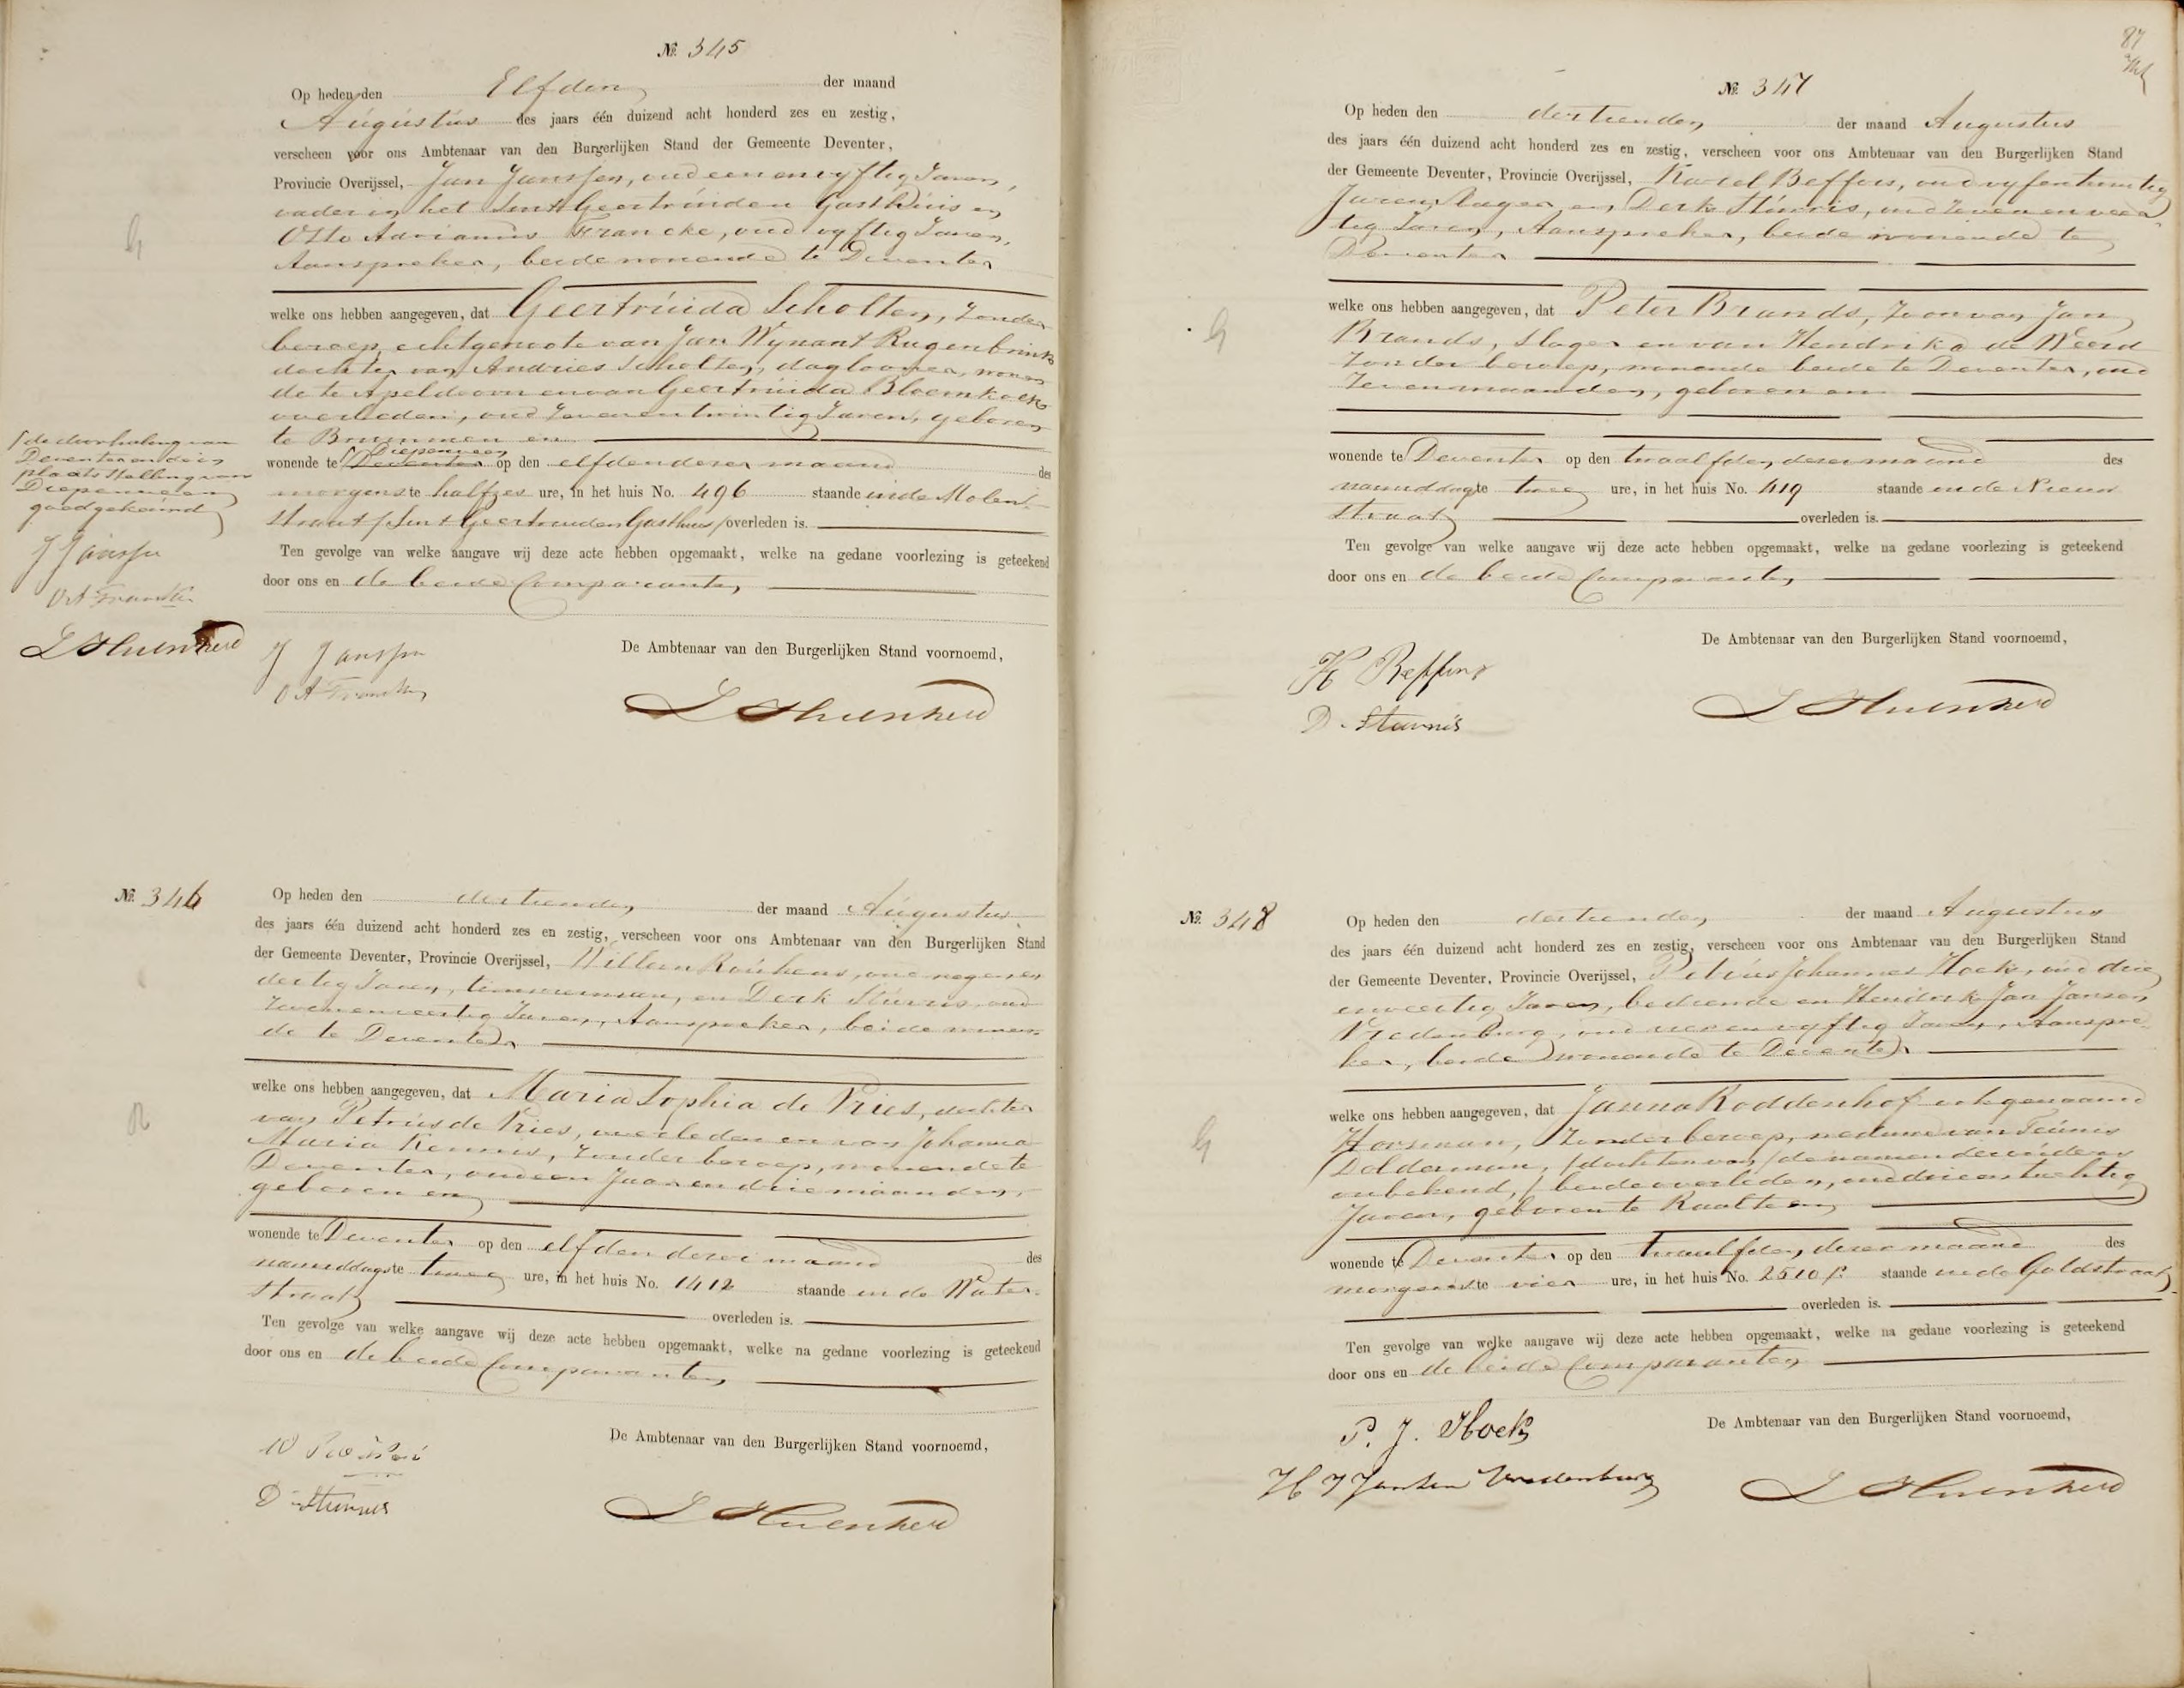 № 345
Op heden den Elfden der maand
Augustus des jaars één duizend acht honderd zes en zestig,
verscheen voor ons Ambtenaar van den Burgerlijken Stand der Gemeente Deventer,
Provincie Overijssel, Jan Janssen, oud een en vyftig Jaren,
vader in het Sint Geertruiden Gasthuis en
Otto Adrianus Francke, oud vyftig Jaren,
Aanspreker, beide wonende te Deventer
welke ons hebben aangegeven, dat Geertruida Scholten, zonder
beroep, echtgenoote van Jan Wynant Rugenbrink
dochter van Andries Scholten, daglooner, wonen
de te Apeldoorn en van Geertruida Bloemkolk
overleden, oud zevenentwintig Jaren, geboren
te Brummen en
Diepenveen
wonende te Deventer op den elfden dezer maand des
morgens te halfzes ure, in het huis No. 496 staande in de Molen-
straat / Sint Geertruiden Gasthuis / overleden is.
Ten gevolge van welke aangave wij deze acte hebben opgemaakt, welke na gedane voorlezing is geteekend
door ons en de beide Comparanten
/ de doorhaling van
Deventer en de in
plaats stelling van
Diepenveen
goedgekeurd
J Janssen
O A Francke
De Ambtenaar van den Burgerlijken Stand voornoemd,
J Janssen
O A Francke
№ 346
Op heden den dertienden der maand Augustus
des jaars één duizend acht honderd zes en zestig, verscheen voor ons Ambtenaar van den Burgerlijken Stand
der Gemeente Deventer, Provincie Overijssel, Willem oud negen en
dertig Jaren, timmerman, en Derk Sturris oud
zevenenveertig Jaren, Aanspreker, beide wonen-
de te Deventer
welke ons hebben aangegeven, dat Maria Sophia de Vries, dochter
van Petrus de Vries, overleden en van Johanna
Maria zonder beroep, wonende te
Deventer, oud een Jaar en drie maanden,
geboren en
wonende te Deventer op den elfden dezer maand des
namiddags te twee ure, in het huis No. 1412 staande in de Water-
straat overleden is.
Ten gevolge van welke aangave wij deze acte hebben opgemaakt, welke na gedane voorlezing is geteekend
door ons en de beide Comparanten
De Ambtenaar van den Burgerlijken Stand voornoemd,
D Sturris
87
№ 347
Op heden den dertienden der maand Augustus
des jaars één duizend acht honderd zes en zestig, verscheen voor ons Ambtenaar van den Burgerlijken Stand
der Gemeente Deventer, Provincie Overijssel, Karel Beffers, oud vyfentwintig
Jaren, Slager en Derk Sturris, oud zeven en veer-
tig Jaren, Aanspreker, beide wonende te
Deventer
welke ons hebben aangegeven, dat Peter Brands, Zoon van Jan
Brands, Slager en van Hendrika de Weerd
zonder beroep, wonende beide te Deventer, oud
zeven maanden, geboren en
wonende te Deventer op den twaalfden dezer maand des
namiddags te twee ure, in het huis No. 419 staande in de Nieuw
straat overleden is.
Ten gevolge van welke aangave wij deze acte hebben opgemaakt, welke na gedane voorlezing is geteekend
door ons en de beide Comparanten
De Ambtenaar van den Burgerlijken Stand voornoemd,
K Beffers
D Sturris
№ 348
Op heden den dertienden der maand Augustus
des jaars één duizend acht honderd zes en zestig, verscheen voor ons Ambtenaar van den Burgerlijken Stand
der Gemeente Deventer, Provincie Overijssel, Petrus Johannes Hoek, oud drie
enveertig Jaren, bediende en Hendrik Jan Jansen
Vredenburg, oud vier en vyftig Jaren, Aanspre-
ker, beide wonende te Deventer
welke ons hebben aangegeven, dat Janna Roddenhof ook genaamd
Horsman, zonder beroep, weduwe van Teunis
Dolderman, / dochter van / de namen der ouders
onbekend, / beide overleden, oud drie en tachtig
Jaren, geboren te Raalte en
wonende te Deventer op den Twaalfden dezer maand des
morgens te vier ure, in het huis No. 2510 f. staande in de Golstraat
overleden is.
Ten gevolge van welke aangave wij deze acte hebben opgemaakt, welke na gedane voorlezing is geteekend
door ons en de beide Comparanten
De Ambtenaar van den Burgerlijken Stand voornoemd,
P. J. Hoek
H J Jansen Vredenburg